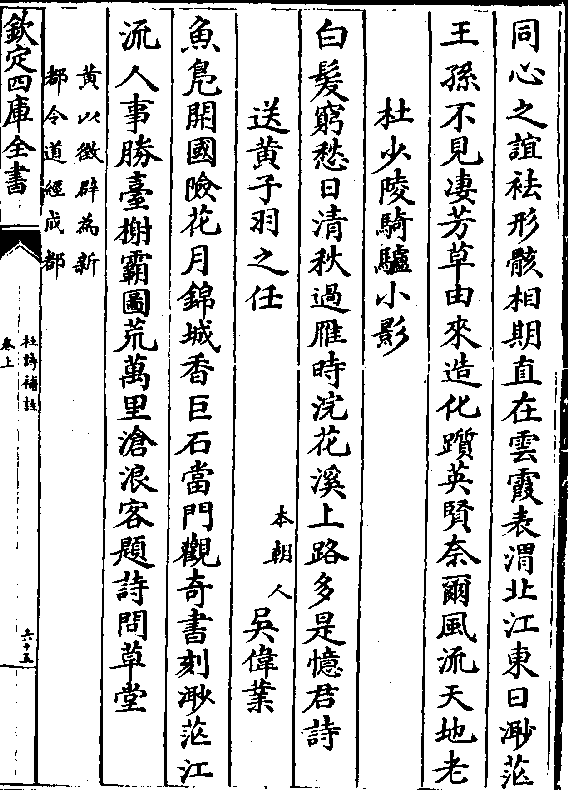 同心之誼袪形骸相期直在雲霞表渭北江東日渺茫
王孫不見凄芳草由來造化躓英賢奈爾風流天地老
杜少陵騎驢小影
白髮窮愁日清秋過雁時浣花溪上路多是憶君詩
送黄子羽之任
本朝人吳偉業
魚鳬開國險花月錦城香巨石當門觀奇書刻渺茫江
流人事勝臺榭霸圖荒萬里滄浪客題詩問草堂
黄以徵辟為新
都令道經成都
欽定四庫全書
杜詩補註
卷上
六十五